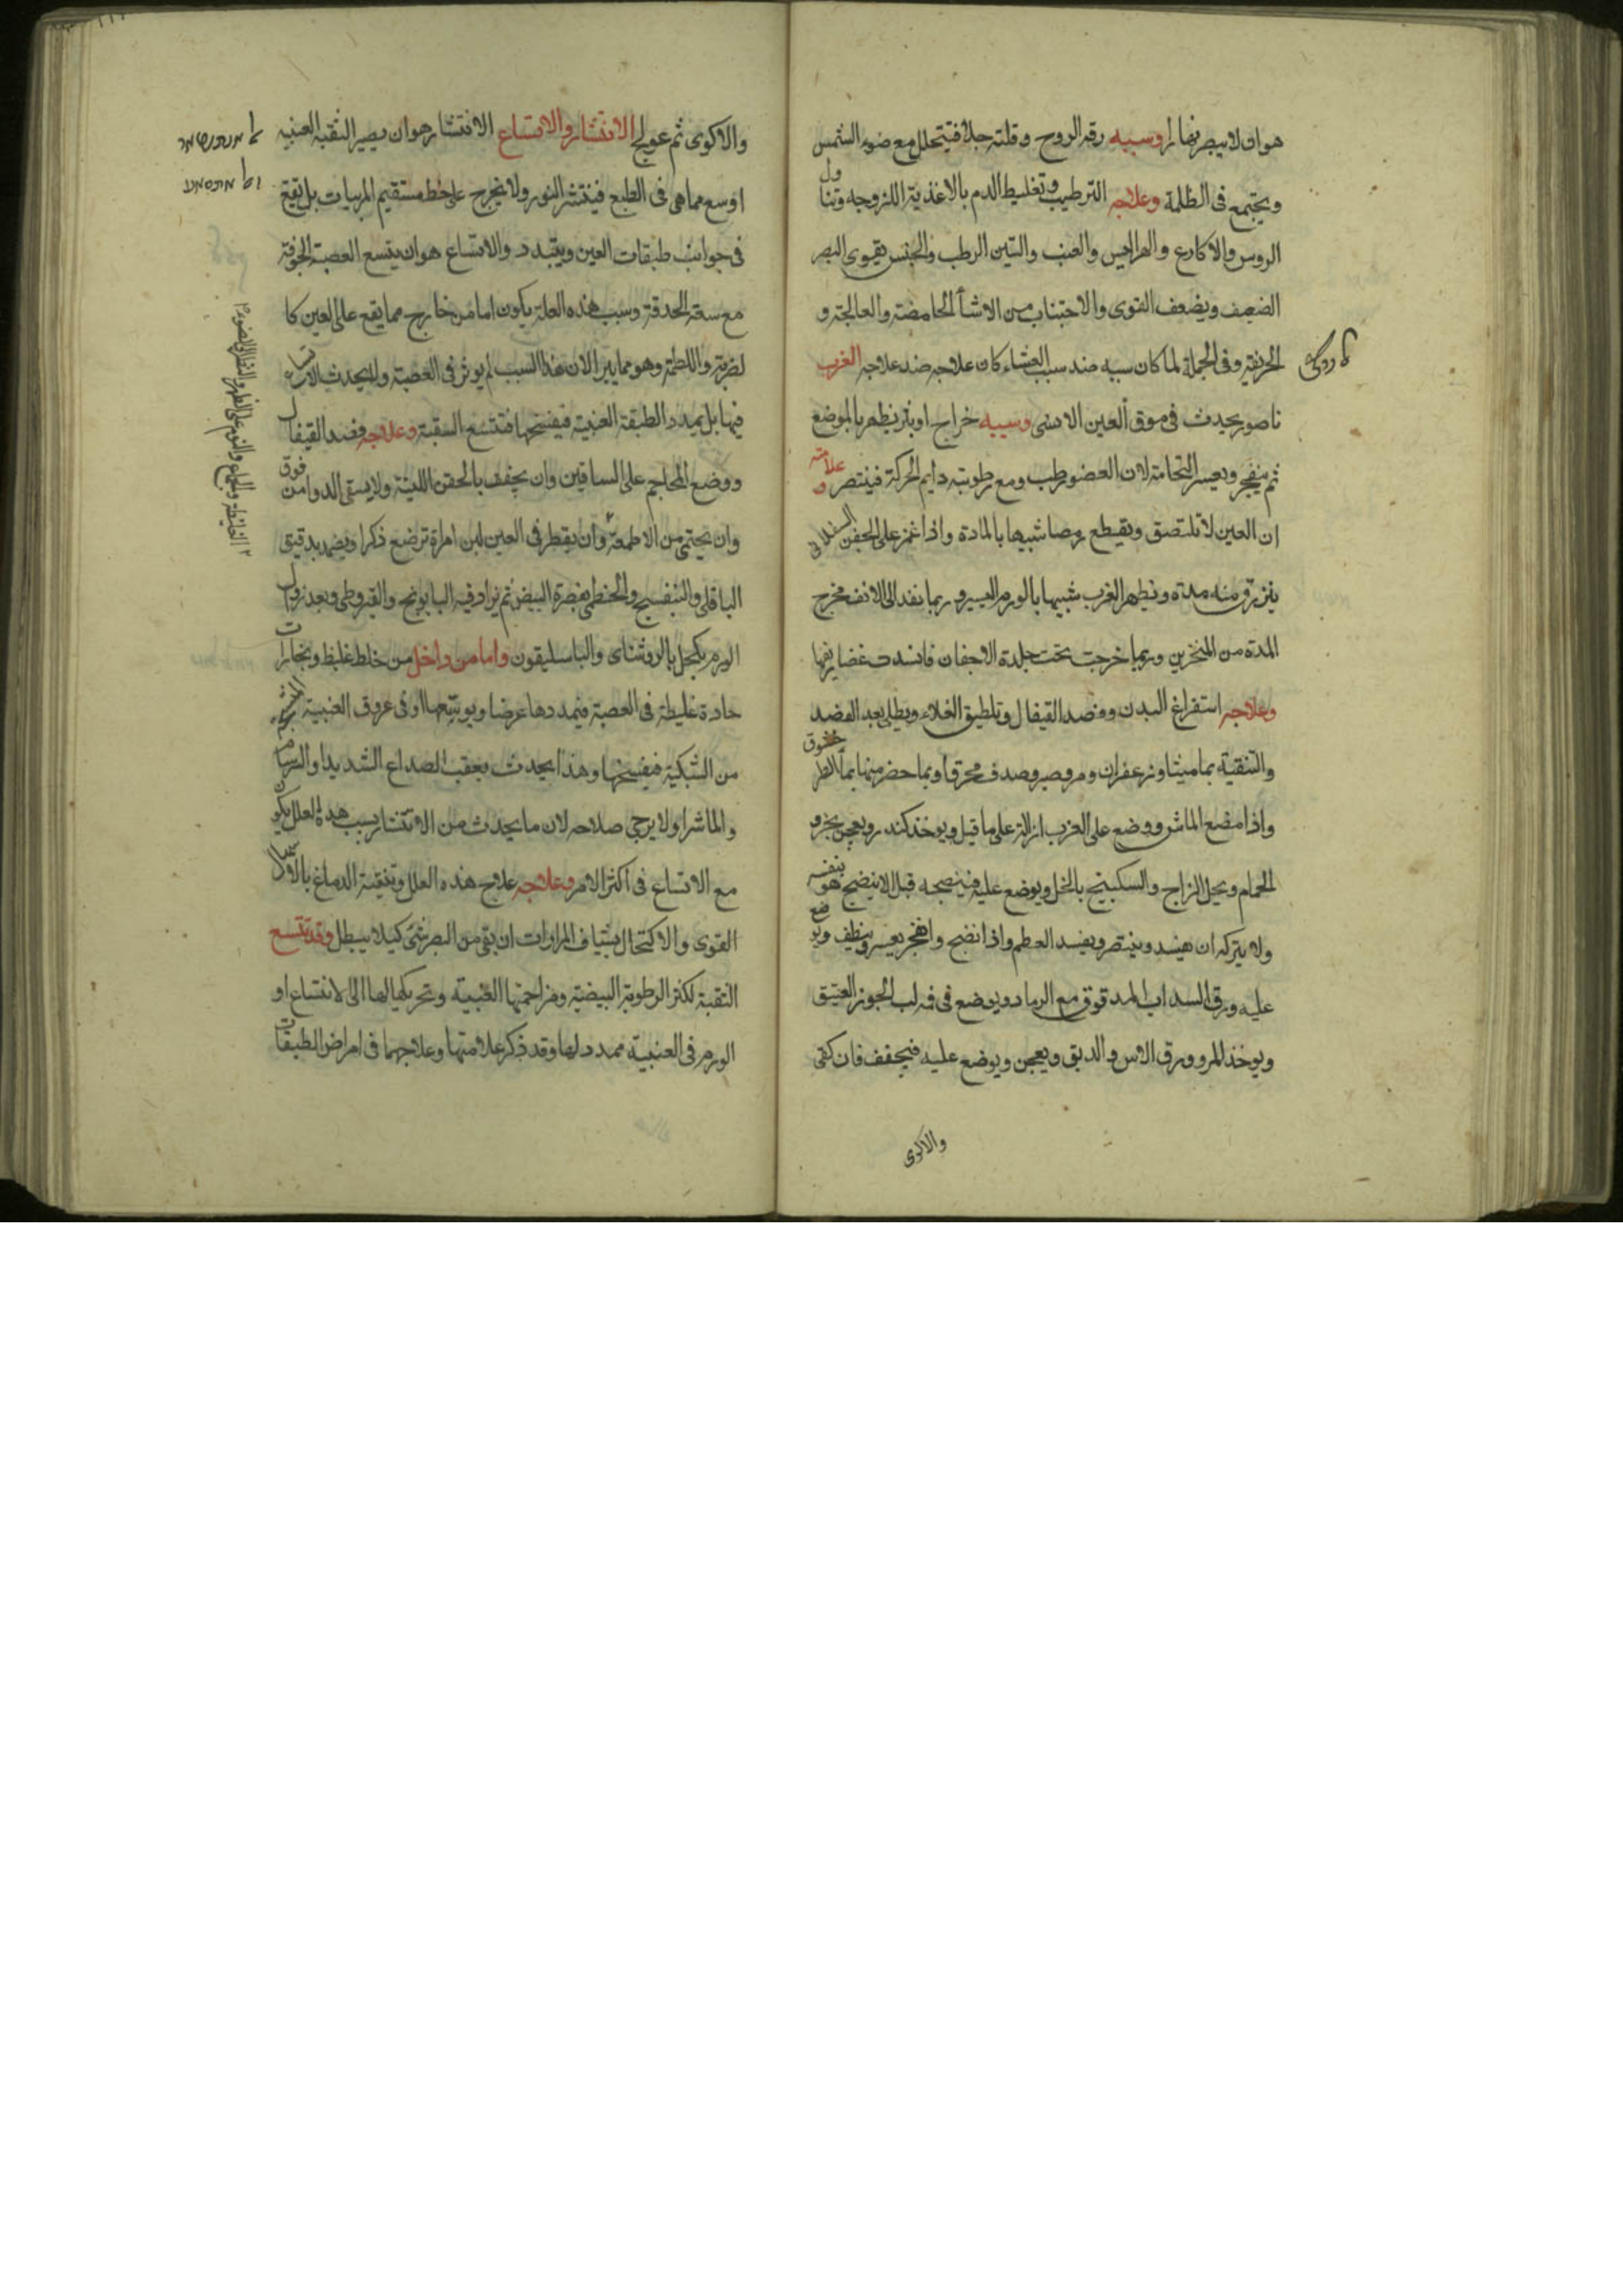 هو ان لا يبصر نهارا وسببه رقه الروح وقلته جدا فيتحلل مع ضوء الشمس
ويجتمع فى الظلمة وعلاجه الترطيب وتغليظ الدم بالاغذية اللزوجه وتناول
الروس والاكارع والهرايس والعنب والتين الرطب يقوى البصر
الضعيف ويضعف القوى والاجتناب من الاشيأ الحامضة والمالحة و
الحريفة وفى الجملة لما كان سببه ضد سبب العشاء كان علاجه ضد علاجه الغرب
ناصور يحدث فى موق العين الانسى وسببه خراج او بثر يظهر بالموضع
ثم ينفجر ويعسر التحامة لان العضو رطب ومع رطوبته دايم الحركة وعلامته
ان العين لا تلتصق ويقطع رمصا شبيها بالمادة واذا غمز على الجفن
منه مدة ويظهر الغرب شبيها بالورم اليسير وربما نفد الى الانف فخرج
المدة من المنخرين وربما خرجت تحت جلدة الاجفان فافسدت غضاريفها
وعلاجه استفراغ البدن وفصد القيفال وتلطيف الغذاء ويطلى بعد الفصد
والتنقية بماميثا وزعفران ومر وصبر وصدف محرق او بما حضر منها بماء
واذا مضغ الماش ووضع على الغرب ازالة على ما قيل ويوخذ كندر ويعجن بخرو
الحمام ويحل الزاج والسكبينج بالخل ويوضع عليه فينضجه قبل ان ينضج هو بنفسه
ولا يتركه ان ويفسد العظم واذا نضج وانفجر يعسر وينظف ويوضع
عليه ورق السداب المدقوق مع الرماد ويوضع فى فمه لب الجوز العتيق
ويوخذ المر وورق الاس والدبق ويعجن ويوضع عليه فيجفف فان كفى
والاكوى
والاكوى ثم عولج الانتشار والاتساع الانتشار هو ان يصير الثقبه العنبيه
اوسع مما هى فى الطبع فينتشر النور ولا يخرج على خط مستقيم المريبات بل يقع
فى جوانب طبقات العين ويتبدد والاتساع هو ان يتسع العصبة المجوفة
مع سعة الحدقة وسبب هذه العلة يكون اما من خارج مما يقع على العين كا
لضربة واللطمة وهو مما يبرا لان هذا السبب لم يوثر فى العصبة ولا يحدث الاتساع
فيها بل يمدد الطبقة العنبية فيفسخها فتتسع السقبة وعلاجه فصد القيفال
ووضع المحاجم على الساقين وان يخفف بالحقن اللينة ولا يسقى الدوا من فوق
وان يحتمى من الاطعمة وان يقطر فى العين لبن امراة ترضع ذكرا ويضمد بدقيق
الباقلى والبنفسج والخطمى بصفرة البيض ثم يزاد فيه البابونج والقيروطى وبعد نزول
الورم يكحل بالروشناى والباسليقون واما من داخل من خلط غليظ وبخارات
حادة غليظة فى العصبة فيمددها عرضا ويوسعها او فى عروق العنبية
من الشبكية فيفسخها وهذا يحدث بعقب الصداع الشديد او السرسام
والماشرا ولا يرجى صلاحه لان ما يحدث من الانتشار بسبب هذه العلل يكون
مع الاتساع فى اكثر الامر وعلاجه علاج هذه العلل وتنقية الدماغ
القوى والاكتحال بشياف المرارات ان بقى من البصر شئ كيلا يبطل وقد تتسع
الثقبة لكثرة الرطوبة البيضية ومزاحمتها العنبية وتحريكها لها الى الاتساع او
الورم فى العنبية ممدد لها وقد ذكر علامتها وعلاجهما فى امراض الطبقات